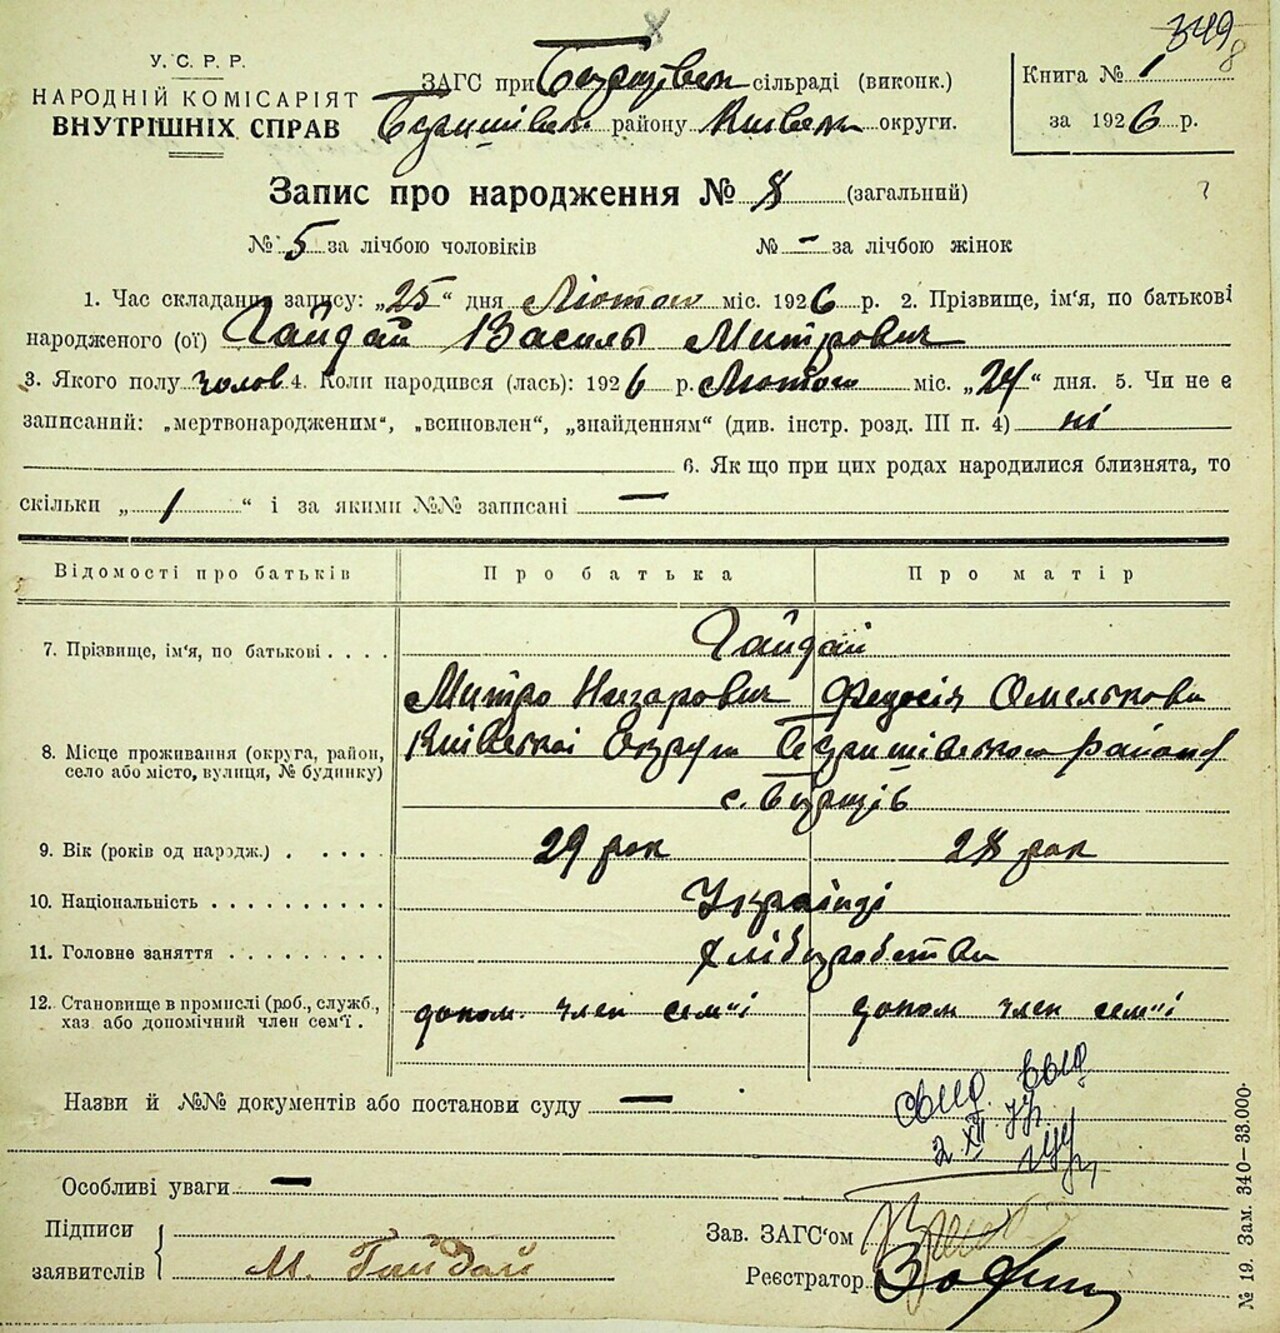 349
8
У. С. Р. Р.
НАРОДНІЙ КОМІСАРІЯТ
ВНУТРІШНІХ СПРАВ
ЗАГС при сільраді (виконк.)
району Київськ округи.
Книга № 1
за 1926 р.
Запис про народження № 8 (загальний)
№ 5 за лічбою чоловіків № — за лічбою жінок
1. Час складання запису: „25“ дня Лютого міс. 1926 р. 2. Прізвище, ім‘я, по батькові
народженого (ої) Гайдай Василь Митрович
3. Якого полу чолов 4. Коли народився (лась): 1926 р. Лютого міс. „24“ дня. 5. Чи не є
записаний: „мертвонародженим“, „всиновлен“, „знайденням“ (див. інстр. розд. III п. 4) ні
6. Як що при цих родах народилися близнята, то
скільки „1“ і за якими №№ записані —
Відомості про батьків Про батька Про матір
7. Прізвище, ім‘я, по батькові . . . . Гайдай
Митро Назарович Федосія Омелькова
8. Місце проживання (округа, район, село або місто, вулиця, № будинку) Київської Округи району
с.
9. Вік (років од народж.) . . . . . 29 рок 28 рок
10. Національність . . . . . . . . . . Українці
11. Головне заняття . . . . . . . . . Хліборобство
12. Становище в промислі (роб., служб., хаз. або допомічний член сем‘ї . допом. член сем"ї допом член сем"ї
Назви й №№ документів або постанови суду —
свид. выд
2 XII 77г.
Особливі уваги —
Підписи
заявителів М. Гайдай
Зав. ЗАГС‘ом
Реєстратор
№ 19. Зам. 340—33.000.